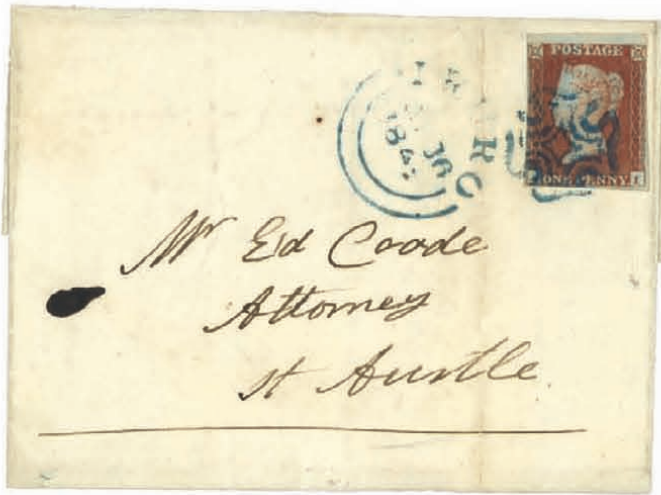 POSTAGE
ONE PENNY
Mr Ed Coode
Attorney
St Austle.